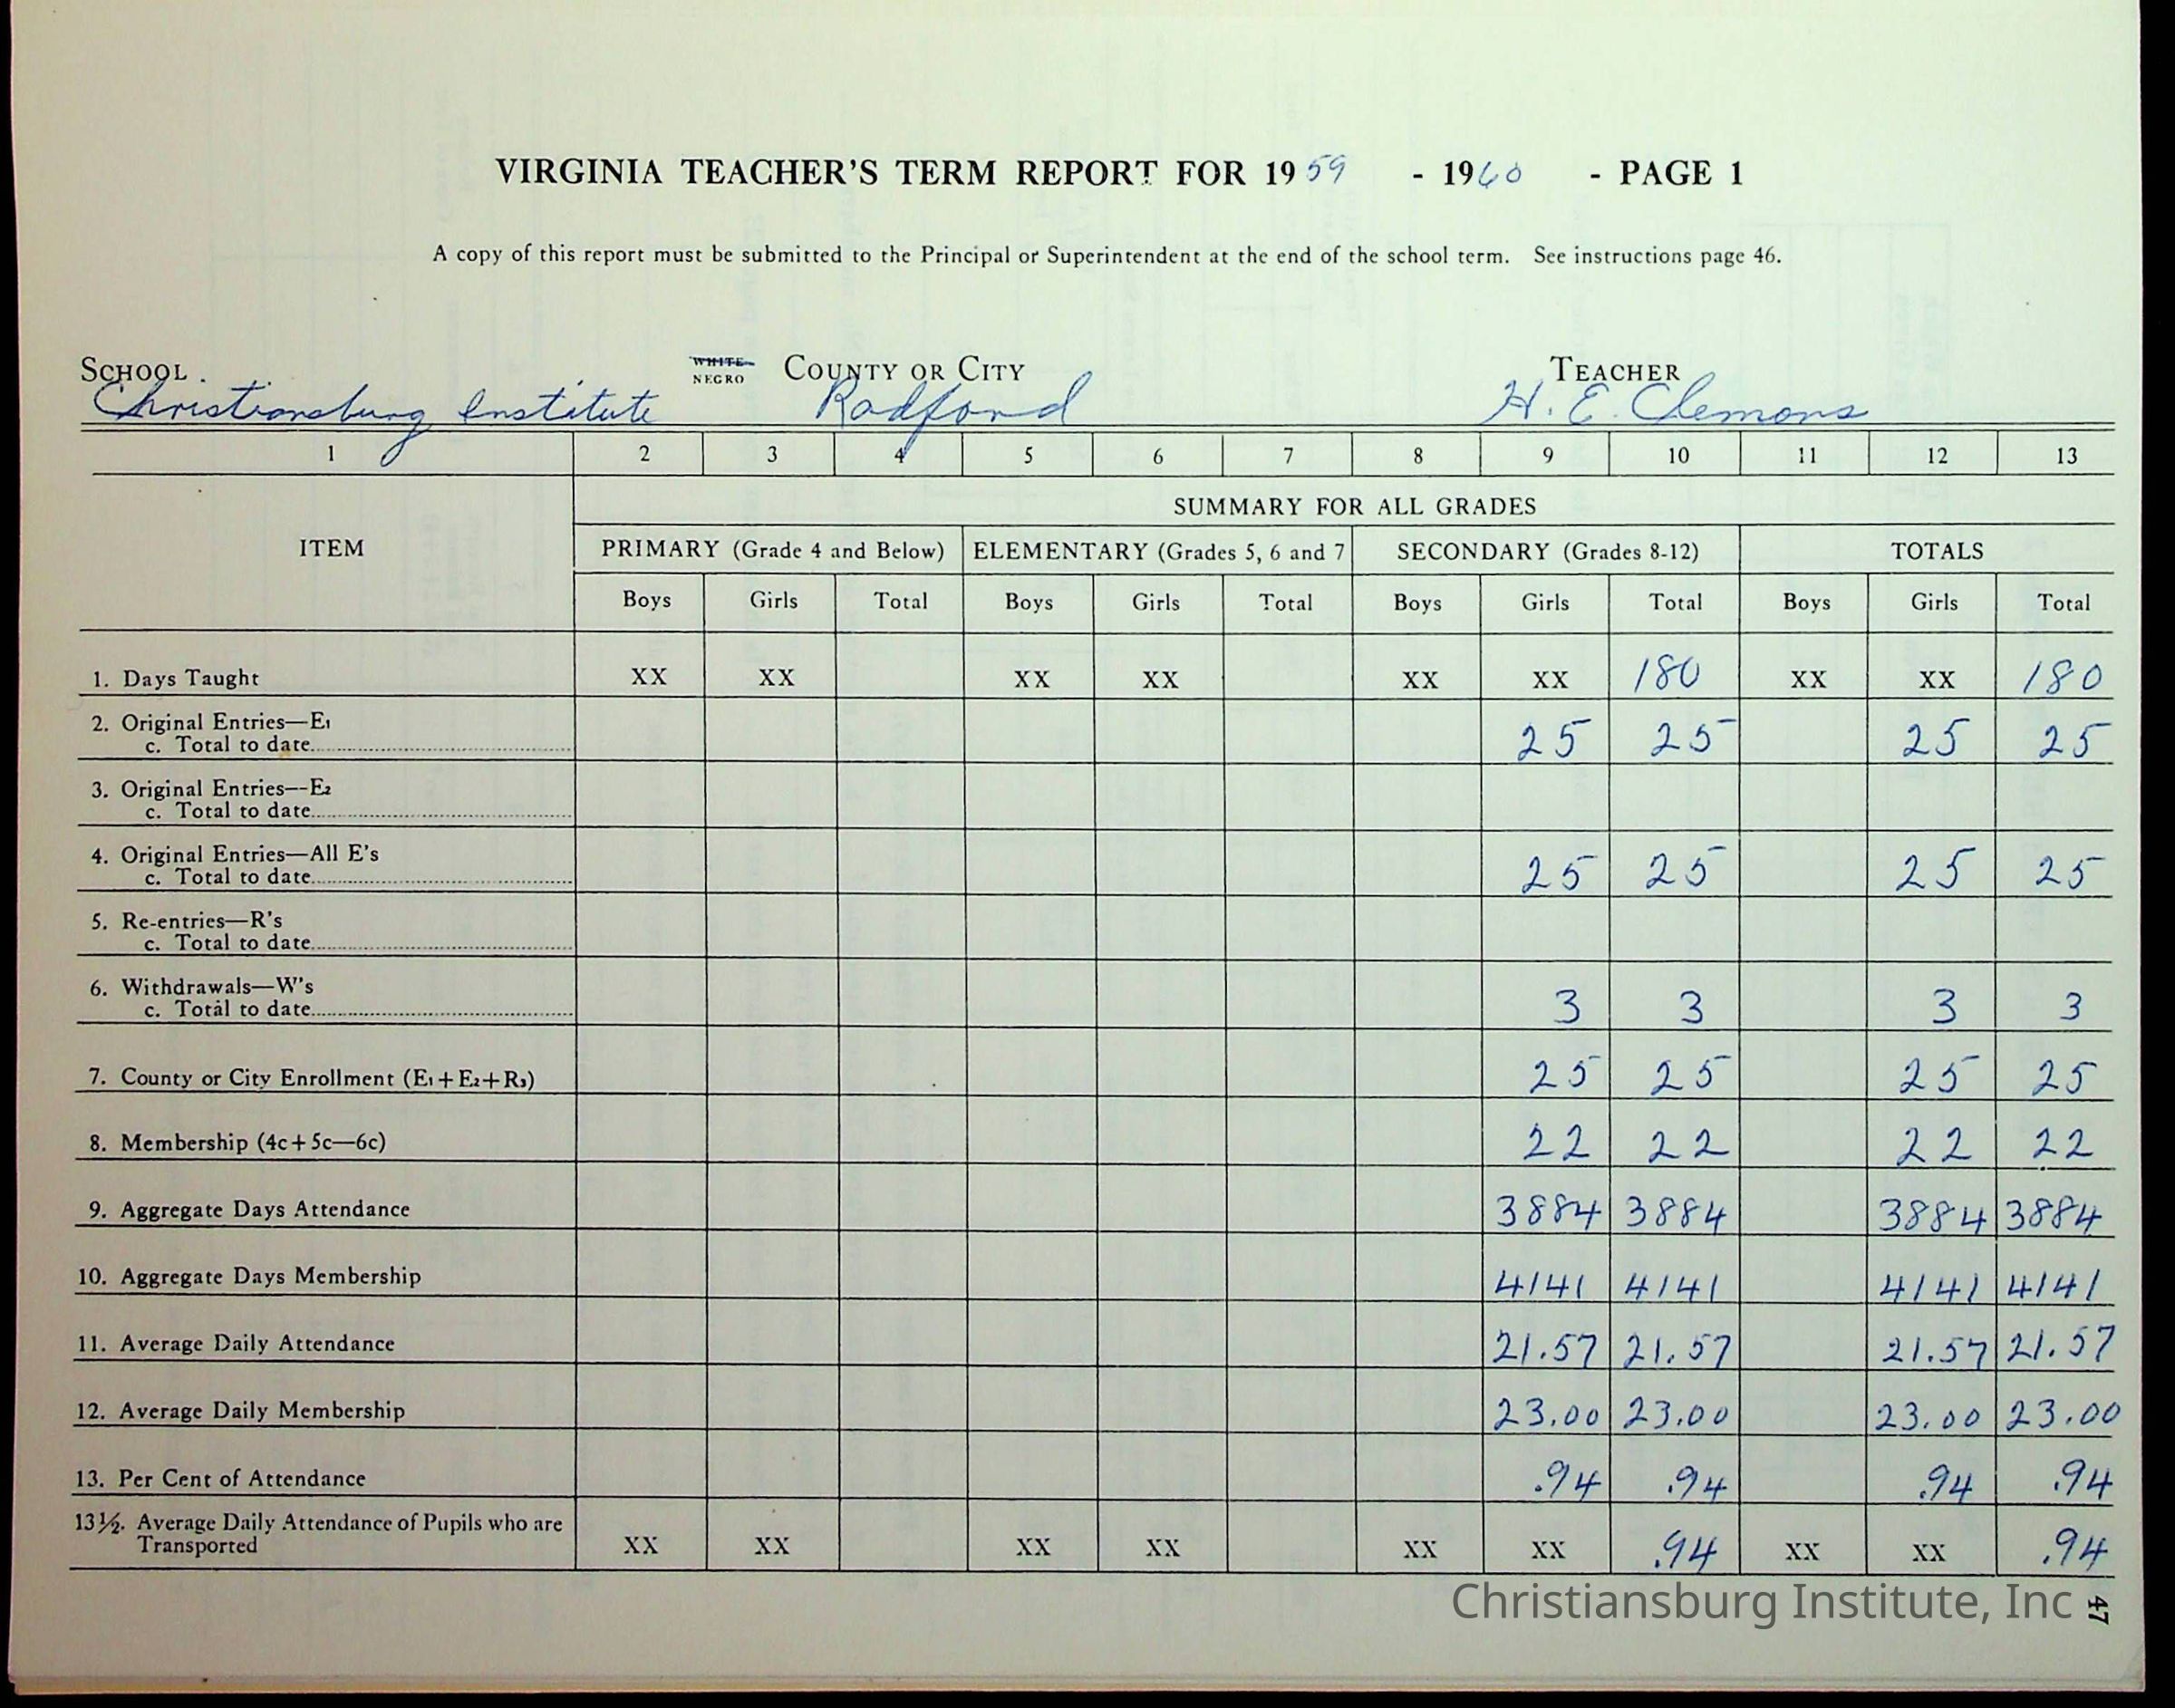 VIRGINIA TEACHER'S TERM REPORT FOR 1959 - 1960 - PAGE 1
A copy of this report must be submitted to the Principal or Superintendent at the end of the school term. See instructions page 46.
SCHOOL WHITE NEGRO COUNTY OR CITY TEACHER
Christiansburg Institute Radford H. E. Clemons
1 2 3 4 5 6 7 8 9 10 11 12 13
SUMMARY FOR ALL GRADES
ITEM PRIMARY (Grade 4 and Below) ELEMENTARY (Grades 5, 6 and 7 SECONDARY (Grades 8-12) TOTALS
Boys Girls Total Boys Girls Total Boys Girls Total Boys Girls Total
1. Days Taught XX XX XX XX XX XX 180 XX XX 180
2. Original Entries—E1
c. Total to date 25 25 25 25
3. Original Entries—E2
c. Total to date
4. Original Entries—All E's
c. Total to date 25 25 25 25
5. Re-entries—R's
c. Total to date
6. Withdrawals—W's
c. Total to date 3 3 3 3
7. County or City Enrollment (E1+E2+R3) 25 25 25 25
8. Membership (4c+5c—6c) 22 22 22 22
9. Aggregate Days Attendance 3884 3884 3884 3884
10. Aggregate Days Membership 4141 4141 4141 4141
11. Average Daily Attendance 21.57 21.57 21.57 21.57
12. Average Daily Membership 23.00 23.00 23.00 23.00
13. Per Cent of Attendance .94 .94 .94 .94
13½. Average Daily Attendance of Pupils who are
Transported XX XX XX XX XX XX .94 XX XX .94
Christiansburg Institute, Inc
47